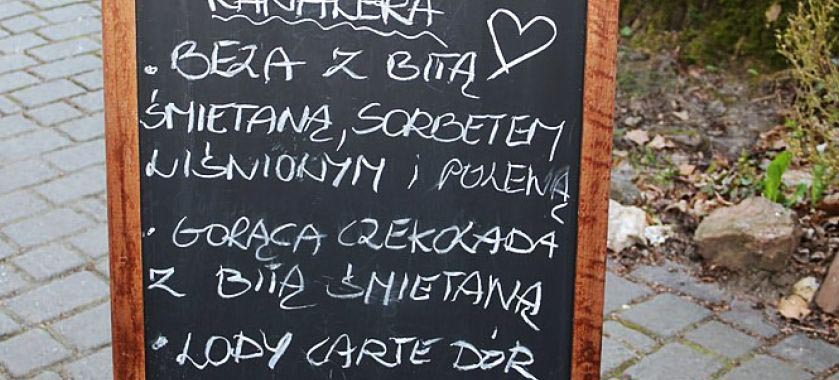 • BEZA Z BITĄ
ŚMIETANĄ, SORBETEM
WIŚNIOWYM i POLEWĄ
• GORĄCA CZEKOLADA
Z BITĄ ŚMIETANĄ
• LODY CARTE DÓR